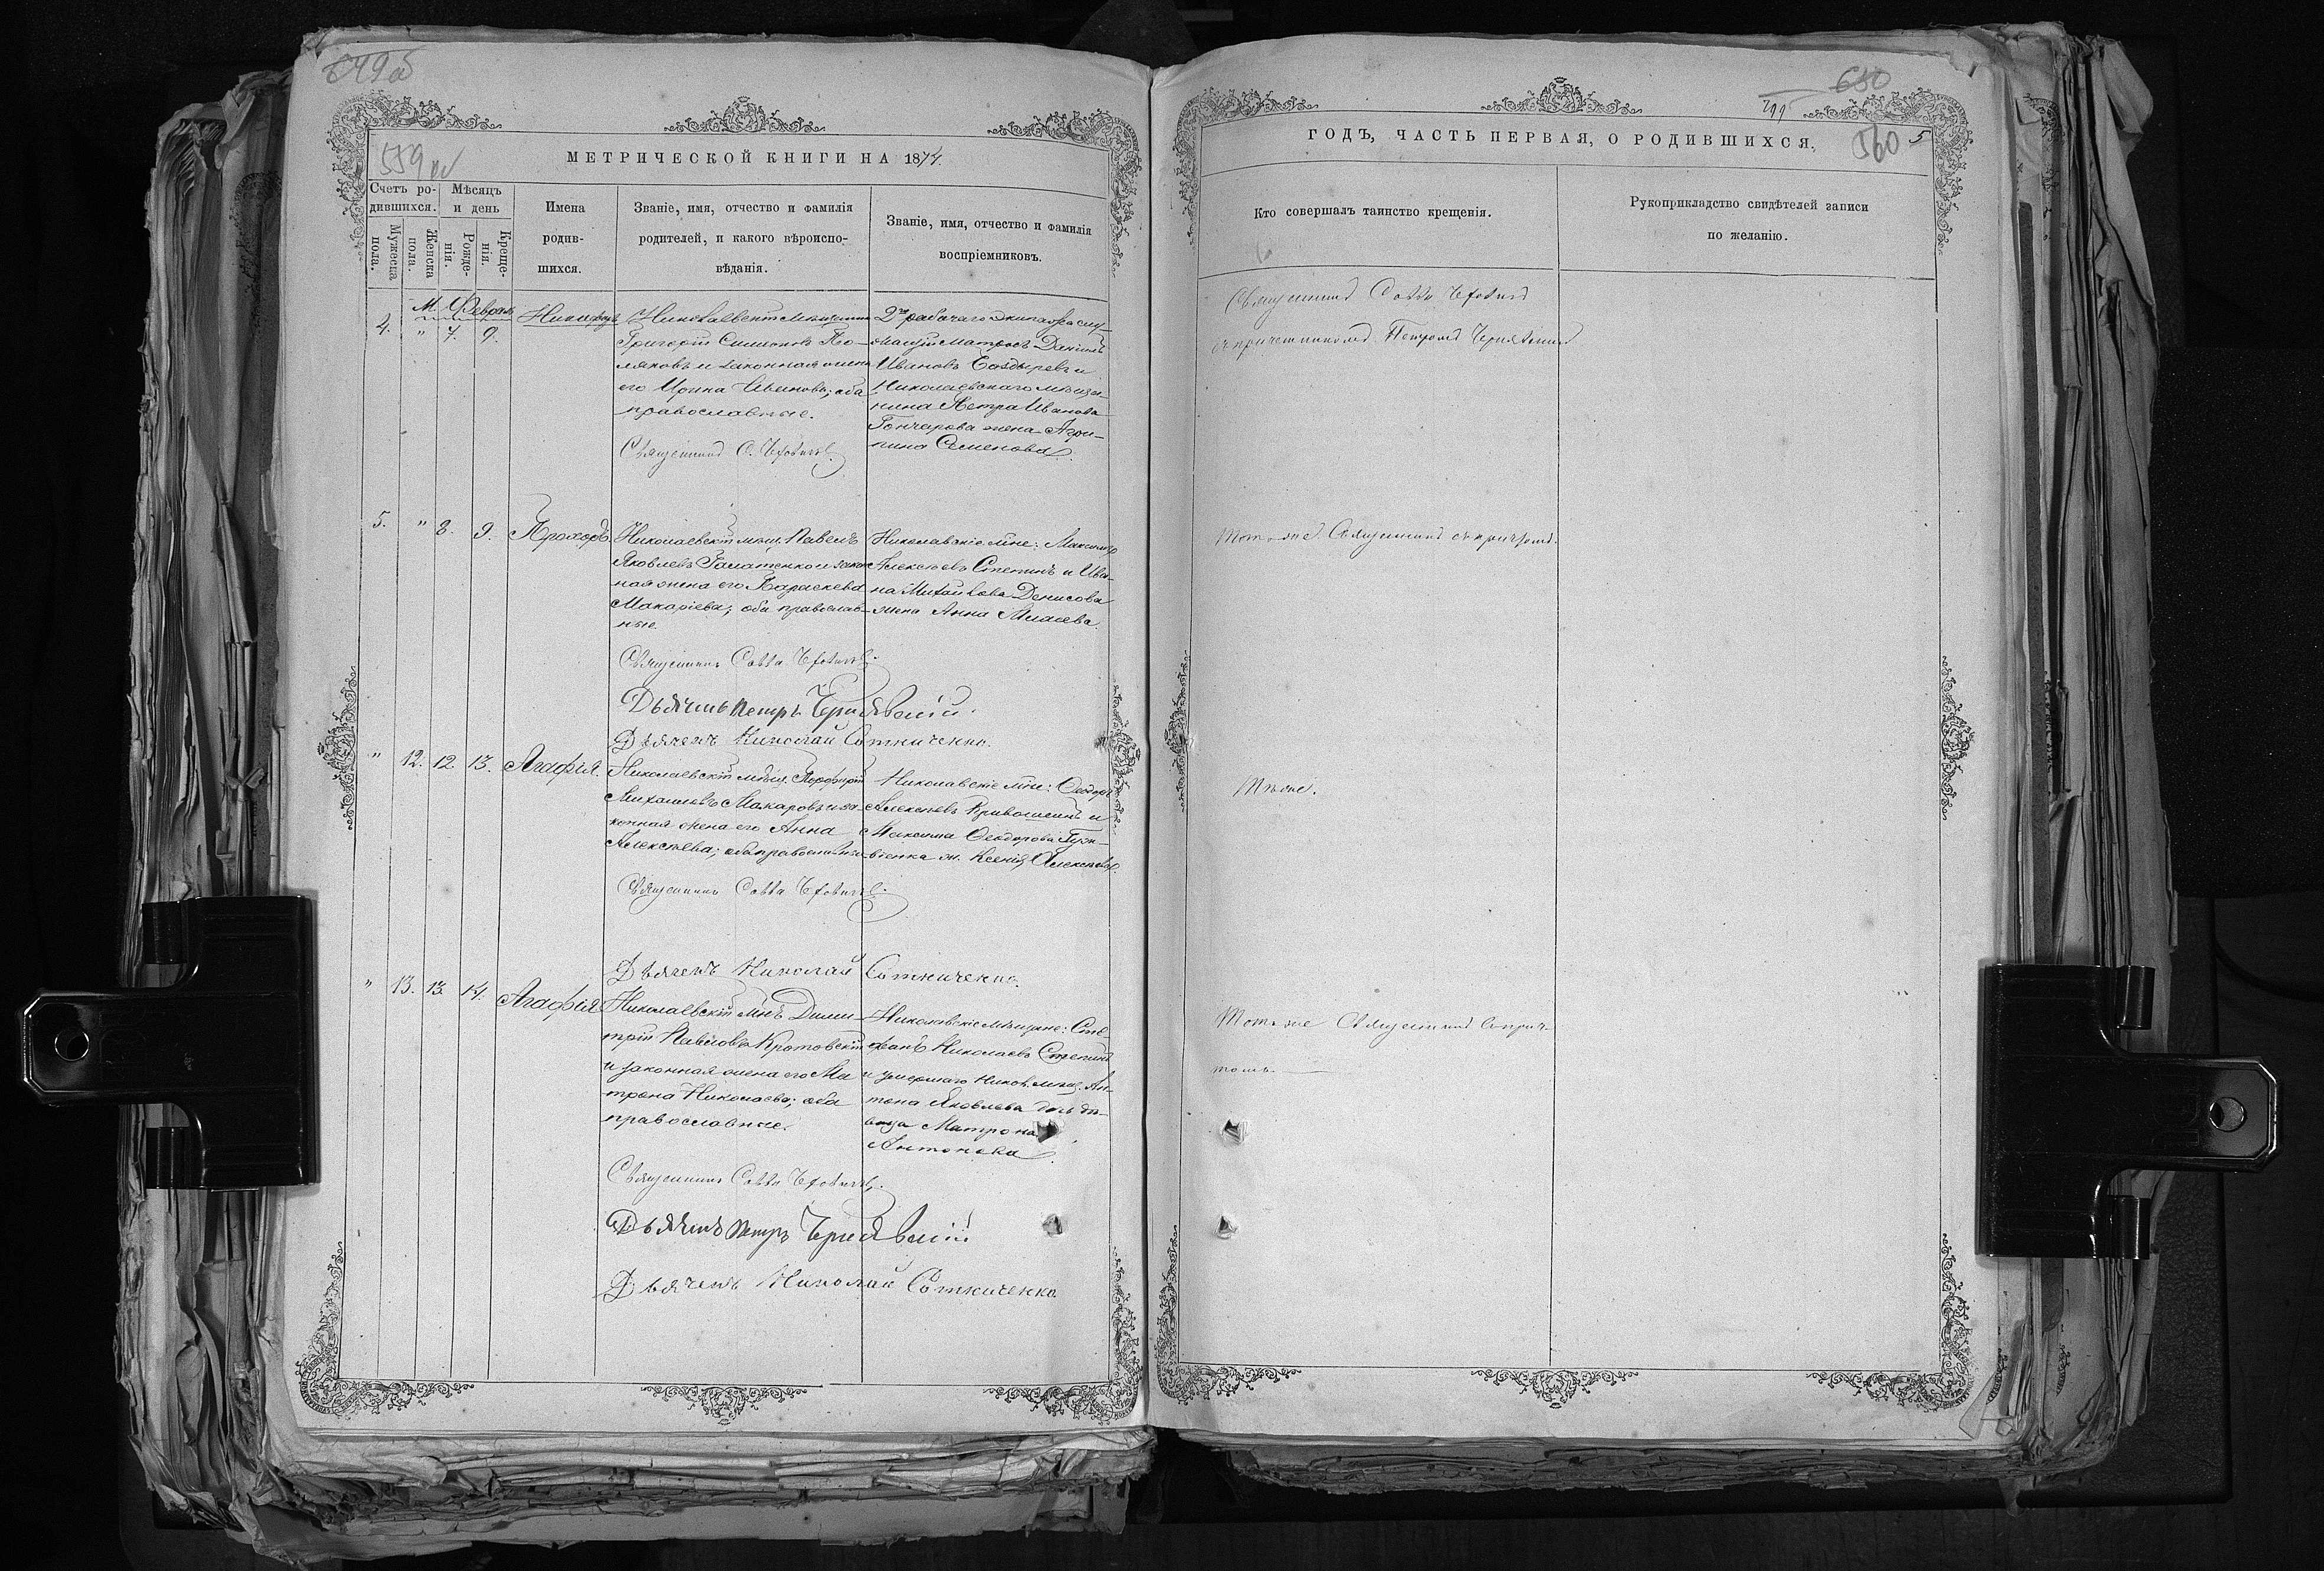 559 об
МЕТРИЧЕСКОЙ КНИГИ НА 1874.
Счетъ ро-
дившихся.
Мужеска
пола.
Женска
пола.
Мѣсяцъ
и день
Рожде-
нія.
Креще-
нія.
Имена
родив-
шихся.
Званіе, имя, отчество и фамилія
родителей, и какого вѣроиспо-
вѣданія.
Званіе, имя, отчество и фамилія
воспріемниковъ.
М. Февраль
4. " 7. 9.
Никифоръ
Николаевскій мѣщанинъ
Григорій Симеоновъ По-
ляковъ и законная жена
его Ирина Иванова; оба
православные.
Священникъ С.
2го рабочаго экипажа слу-
жащій матросъ Даніилъ
Ивановъ Болдыревъ и
Николаевскаго мѣща-
нина Петра Иванова
Гончарова жена Агри-
пина Семенова.
5. " 8. 9.
Прохоръ
Николаевскій мѣщ. Павелъ
Яковлевъ и закон-
ная жена его Параскева
Макаріева; оба православ-
ные.
Священникъ Савва
Дьячекъ Петръ Чернявскій.
Дьячекъ Николай Сотниченко.
Николаевскіе мѣне: Максимъ
Алексѣевъ Степинъ и Ива-
на Михайлова Денисова
жена Анна
" 12. 12. 13.
Агафія.
Николаевскій мѣщ. Порфирій
Михайловъ Макаровъ и за-
конная жена его Анна
Алексѣева; оба православные
Священникъ Савва
Дьячекъ Николай Сотниченко.
Николаевскіе мѣне: Ѳеодоръ
Алексѣевъ Кривошеинъ и
Максима Ѳеодорова
ж. Ксенія Алексѣева.
" 13. 13. 14.
Агафія
Николаевскій мѣнъ Дими-
трій Павловъ Кротовскій
и законная жена его Ма-
трона Николаева; оба
православные.
Священникъ Савва
Дьячекъ Петръ Чернявскій
Дьячекъ Николай Сотниченко
Николаевскіе мѣщане: Сте-
фанъ Николаевъ Степинъ
и умершаго Никол. мѣщ. Ан-
тона Яковлева дочь дѣ-
вица Матрона
Антонова.
560
5
ГОДЪ, ЧАСТЬ ПЕРВАЯ, О РОДИВШИХСЯ.
Кто совершалъ таинство крещенія.
Рукоприкладство свидѣтелей записи
по желанію.
Священникъ Савва
съ причетникомъ Петромъ Чернявскимъ
Тотъ-же Священникъ съ причтомъ.
Тѣ же.
Тотъ же Священникъ съ прич-
томъ.